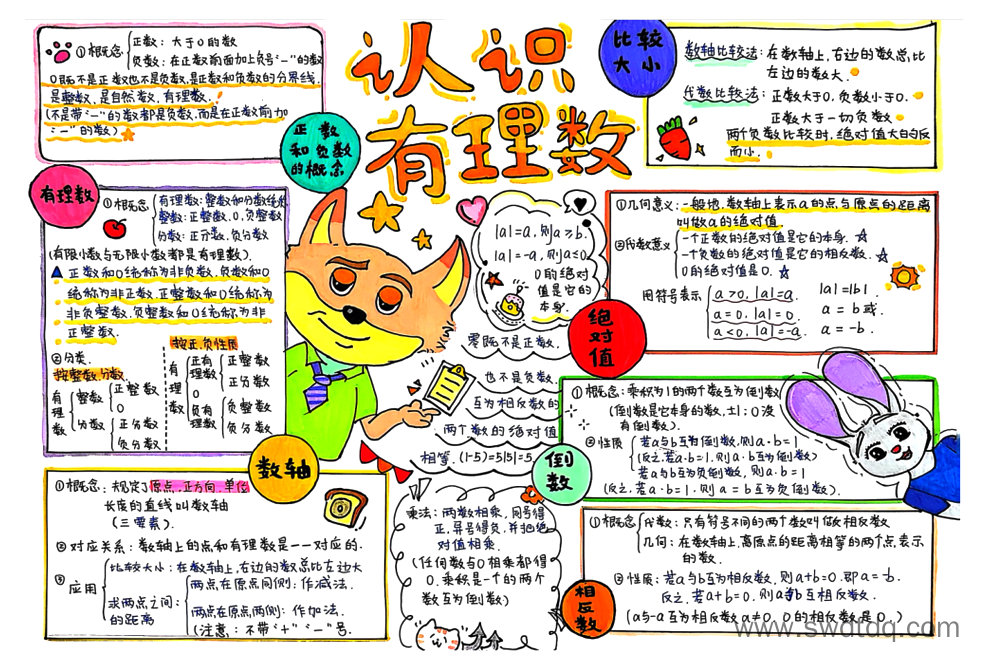 认识
有理数
正数
和负数
的概念
①概念
正数：大于0的数
负数：在正数前面加上负号“-”的数
0既不是正数也不是负数,是正数和负数的分界线,
是整数,是自然数,有理数.
(不是带“-”的数都是负数,而是在正数前加
“-”的数)
比较
大小
数轴比较法：在数轴上,右边的数总比
左边的数大.
代数比较法：正数大于0,负数小于0.
正数大于一切负数
两个负数比较时,绝对值大的反
而小.
有理数
①概念
有理数：整数和分数统称
整数：正整数,0,负整数
分数：正分数,负分数
(有限小数与无限小数都是有理数).
▲正数和0统称为非负数,负数和0
统称为非正数.正整数和0统称为
非负整数.负整数和0统称为非
正整数.
②分类.
按整数,分数
有理数
整数
正整数
0
负整数
分数
正分数
负分数
按正,负性质
有理数
正有理数
正整数
正分数
0
负有理数
负整数
负分数
|a|=a,则a≥
|a|=-a,则a≤0
0的绝对
值是它的
本身.
零既不是正数.
也不是负数.
互为相反数的
两个数的绝对值
相等.(|-5|=5|5|=5.
绝对值
①几何意义：一般地,数轴上表示a的点与原点的距离
叫做a的绝对值.
②代数意义
一个正数的绝对值是它的本身.
一个负数的绝对值是它的相反数.
0的绝对值是0.
用符号表示
a>0,|a|=a.
a=0,|a|=0.
a<0,|a|=-a.
|a|=|b|.
a=b或.
a=-b.
倒数
①概念：乘积为1的两个数互为倒数
(倒数是它本身的数,±1；0没
有倒数).
②性质
若a与b互为倒数,则a·b=1
(反之,若a·b=1,则a·b互为倒数
若a与b互为负倒数,则a·b=1
(反之,若a·b=1,则a=b互为负倒数).
数轴
①概念：规定了原点,正方向,单位
长度的直线叫数轴
(三要素).
②对应关系：数轴上的点和有理数是一一对应的.
③应用
比较大小：在数轴上,右边的数总比左边大
求两点之间的距离：
两点在原点同侧：作减法.
两点在原点两侧：作加法.
(注意：不带“+”“-”号.
乘法：两数相乘,同号得
正,异号得负,并把绝
对值相乘.
(任何数与0相乘都得
0.乘积是一个的两个
数互为倒数)
相反数
①概念
代数：只有符号不同的两个数叫做相反数
几何：在数轴上,离原点的距离相等的两个点表示
的数.
②性质：若a与b互为相反数,则a+b=0.即a=-b.
反之,若a+b=0,则a与b互相反数.
(a与-a互为相反数a≠0,0的相反数是0.)
www.swdtdq.com